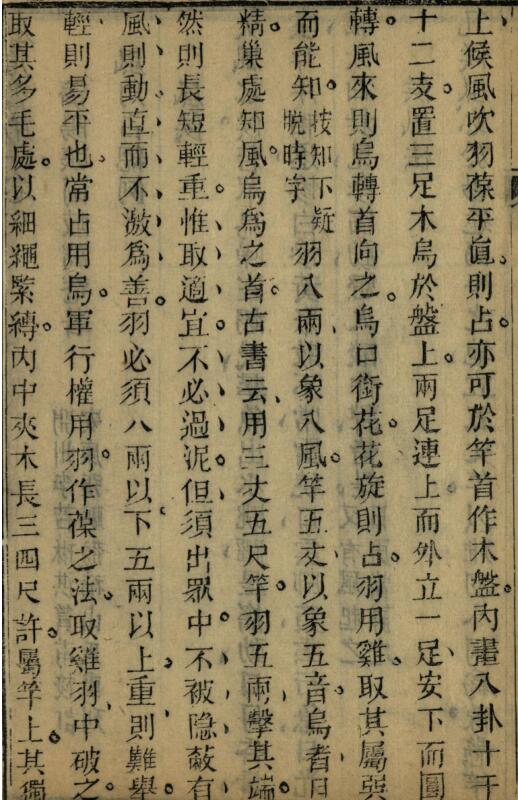 上候風吹羽葆平直則占。亦可於竿首作木盤。內畫八卦十干
十二支。置三足木烏於盤上。兩足連上而外立一足安下而圓
轉。風來則烏轉首向之。烏口銜花。花旋則占。羽用雞取其屬巽
而能知。按知下疑脫時字羽八兩以象八風。竿五丈以象五音。烏者日
精。巢處知風。烏爲之首。古書云。用三丈五尺竿。羽五兩。擊其端。
然則長短輕重。惟取適宜不必過泥。但須出眾中。不被隱蔽。有
風則動直而不激爲善。羽必須八兩以下五兩以上。重則難舉。
輕則易平也。常占用烏。軍行權用羽。作葆之法。取雞羽中破之。
取其多毛處。以細繩緊縛。內中夾木長三四尺許。屬竿上。其獨